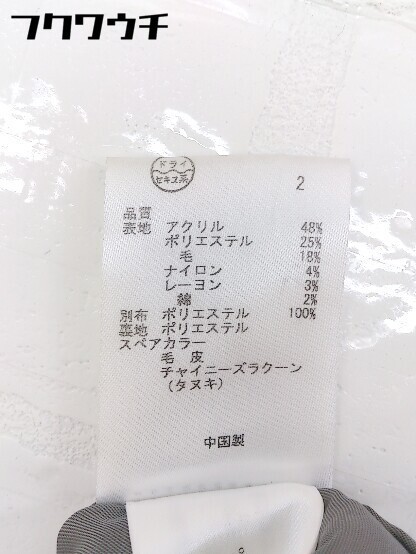 フクワウチ
ドライ
セキユ系
2
品質
表地 アクリル 48%
ポリエステル 25%
毛 18%
ナイロン 4%
レーヨン 3%
綿 2%
別布 ポリエステル 100%
裏地 ポリエステル
スペアカラー
毛 皮
チャイニーズラクーン
(タヌキ)
中国製